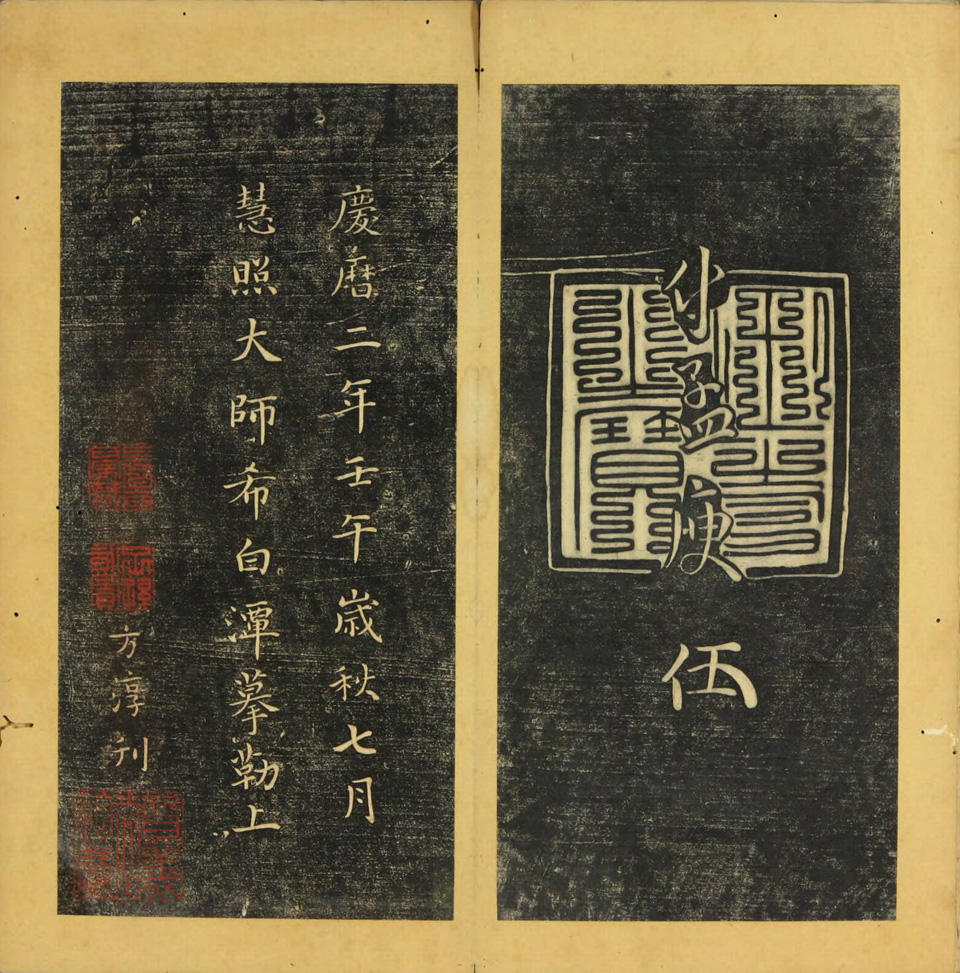 付孟庾 伍
慶暦二年壬午歲秋七月
慧照大師希白潭摹勒上
方淳刊